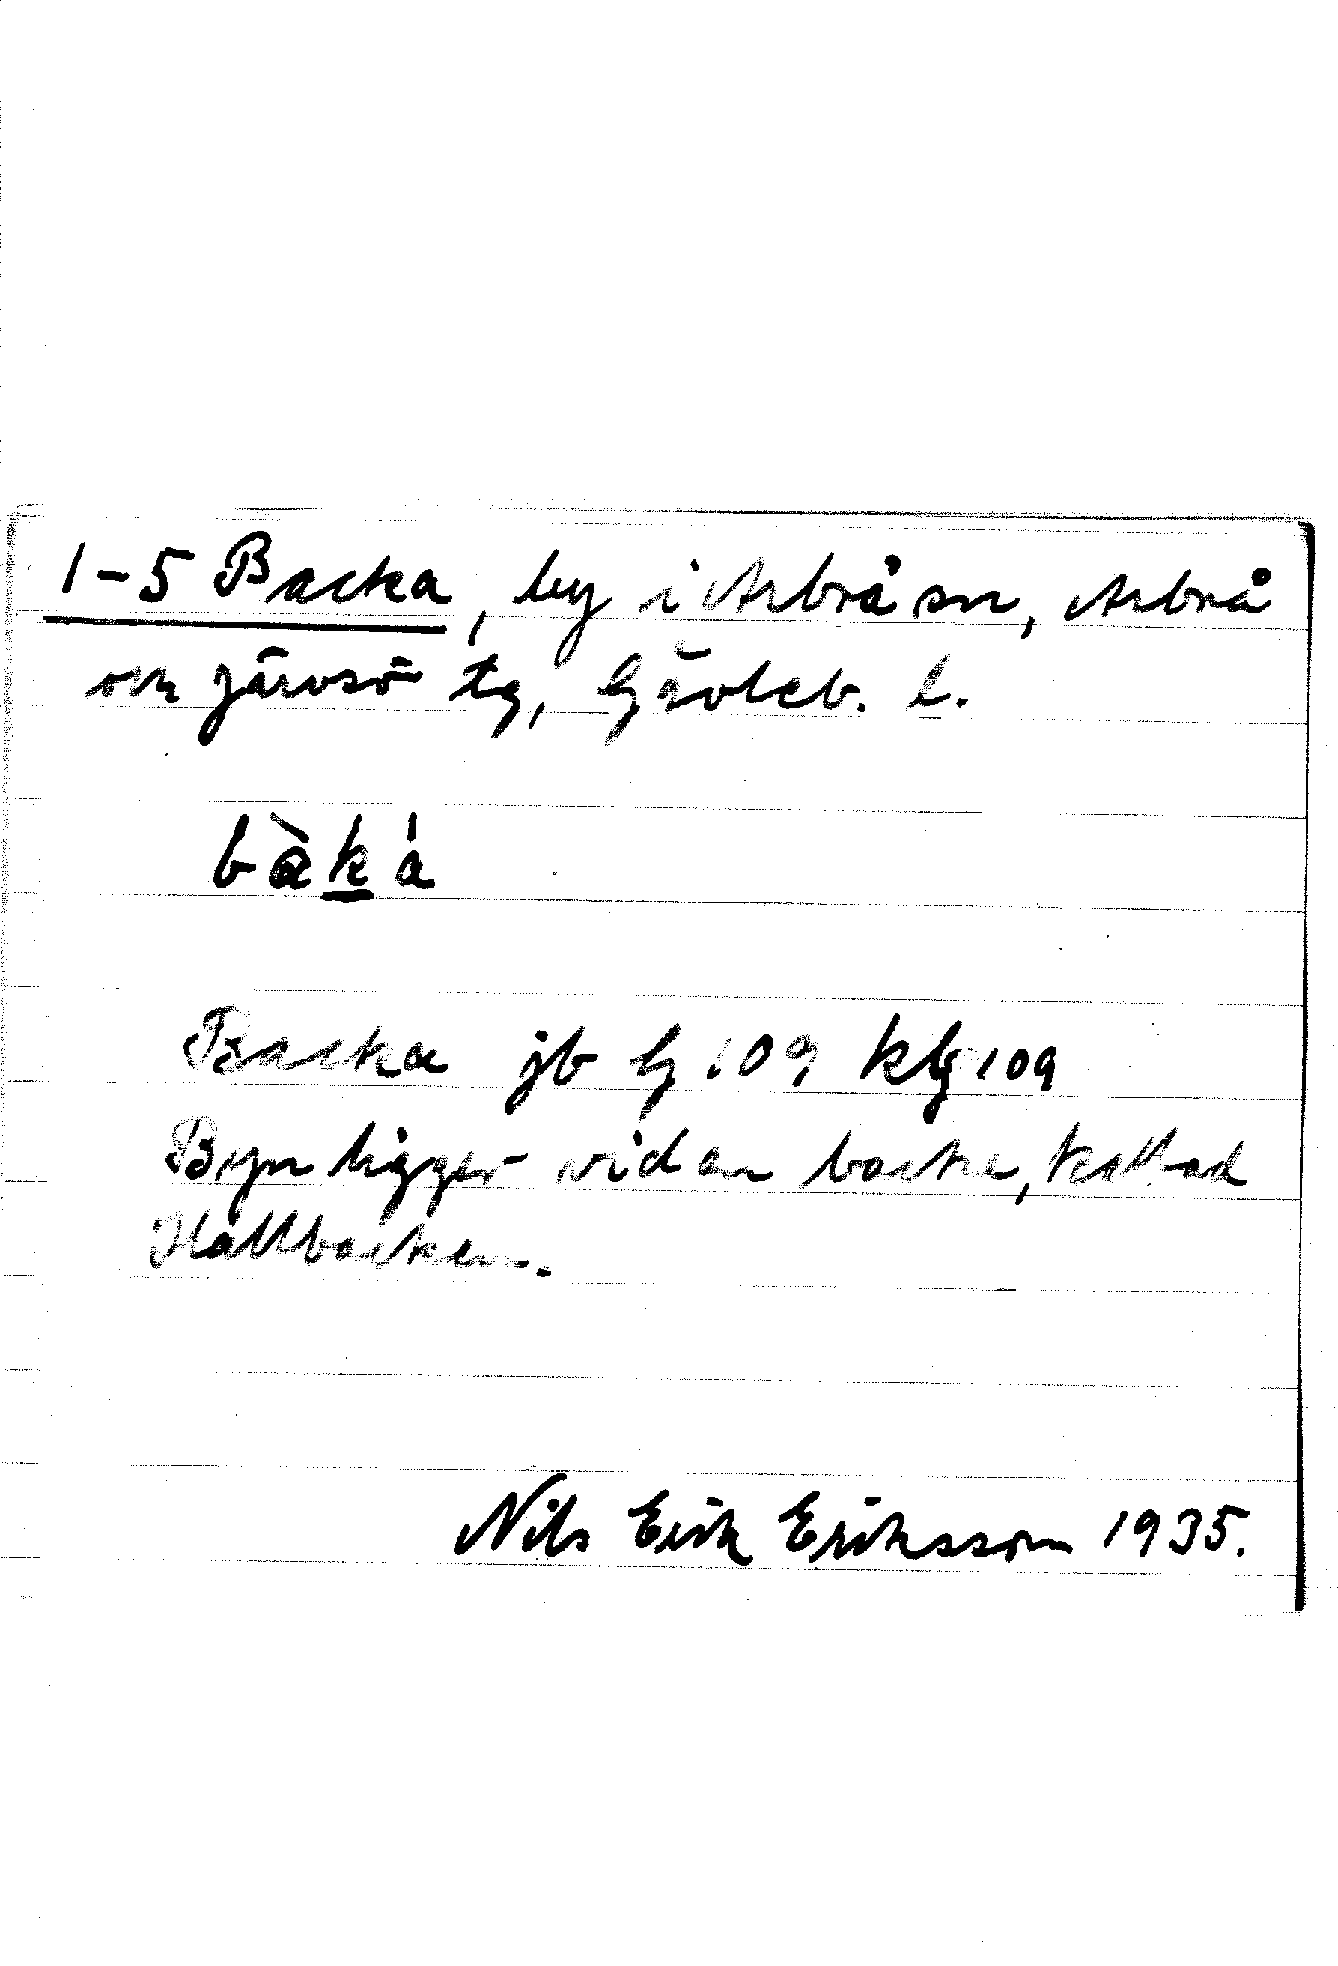 1-5 Backa, by i Arbrå sn, Arbrå
och Järvsö tg, Gävleb. l.
bàká
Backa jb G 109 kG 109
Byn ligger vid en backe, kallad
Hållbacken.
Nils Erik Eriksson 1935.